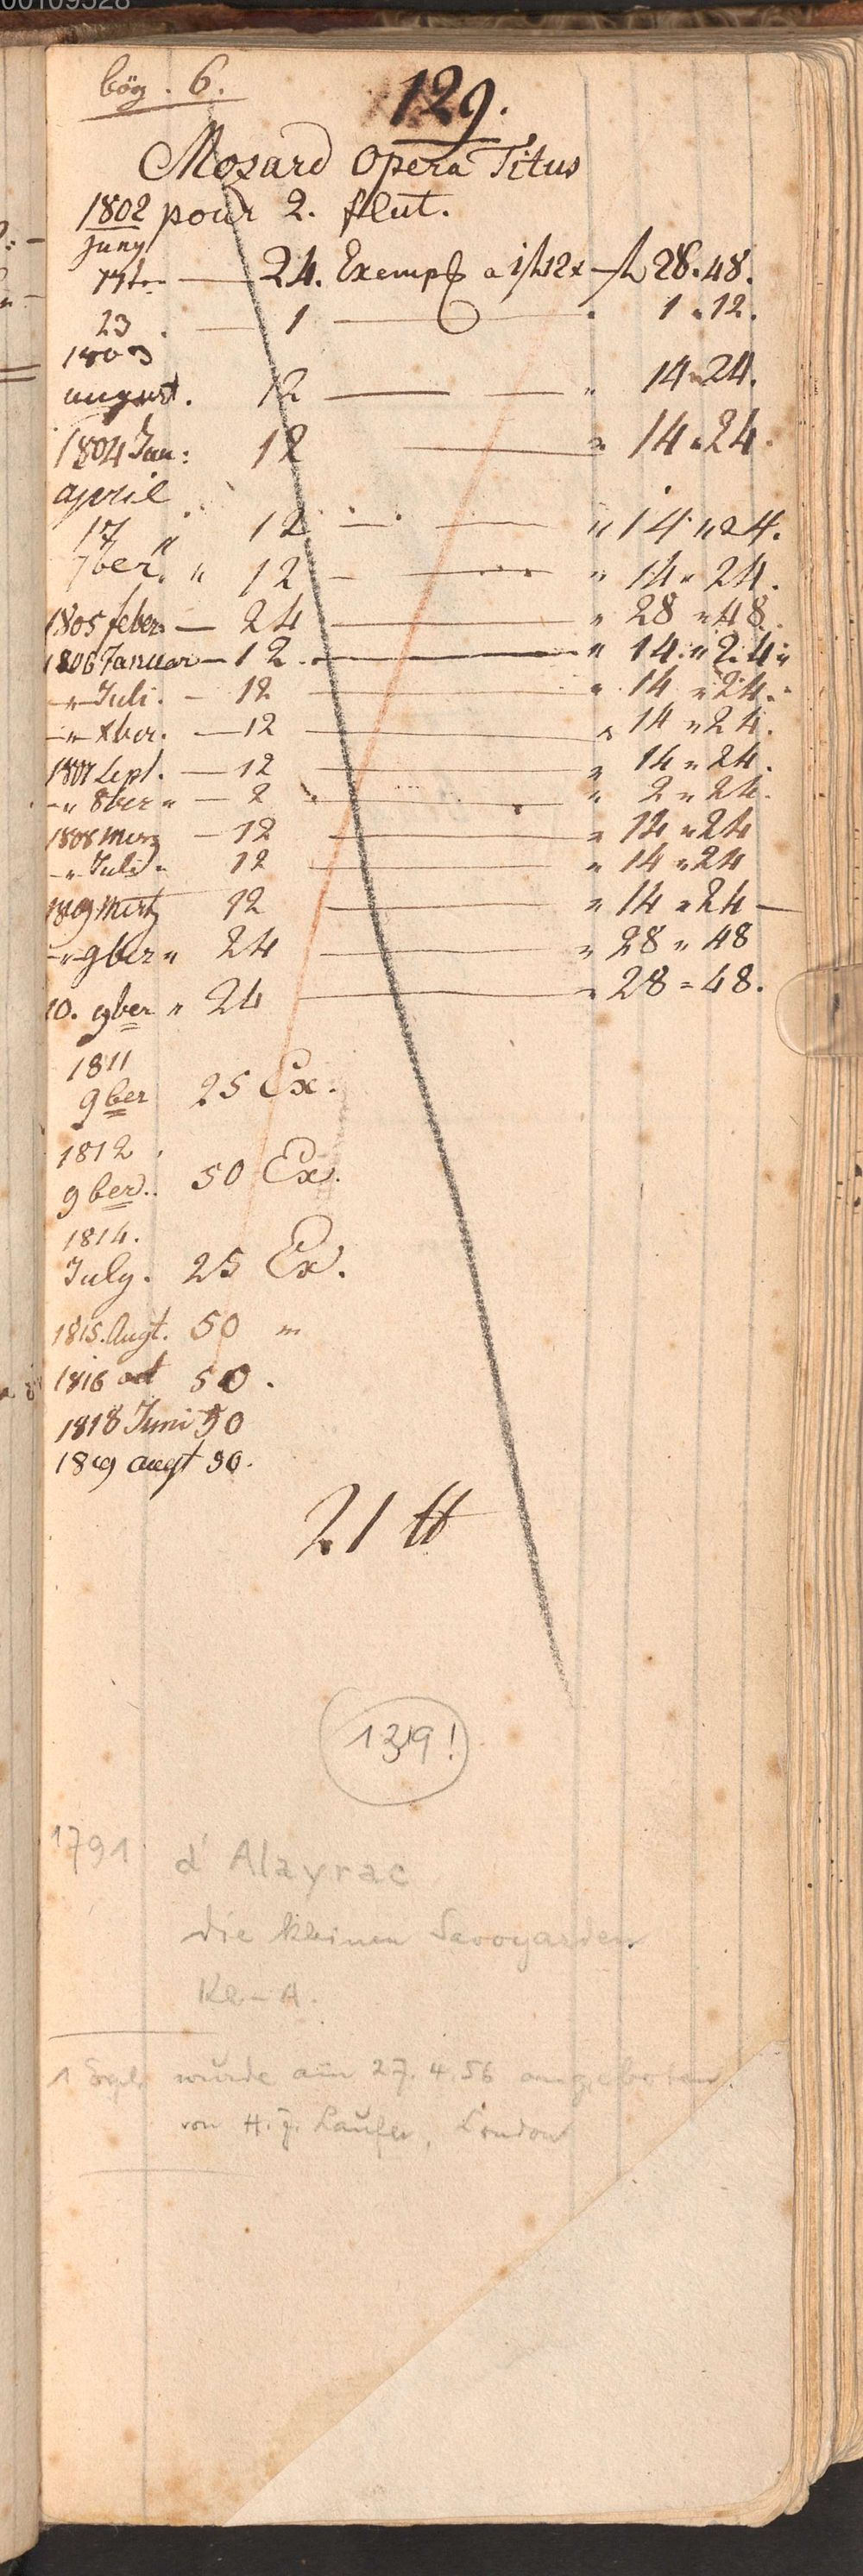 00109528
bög. 6.
129.
Mozard Opera Titus
1802 pour 2. flut.
juny
24. Exempl a 1f12x — f 28.48.
23. — 1 — " 1.12.
1803
august. 12 — " 14.24.
1804 Jan: 12 — " 14.24.
april
17 " 12 — " 14 " 24.
7ber. " 12 — " 14 " 24.
1805 feber — 24 — " 28 " 48.
1806 Januar — 12. — " 14. " 24 "
— " Juli. — 12 — " 14 " 24.
— " Xber. — 12 — " 14 " 24.
1807 Sept. — 12 — " 14 " 24.
— " 8ber " — 2 — " 2 " 24.
1808 Merz — 12 — " 14 " 24
— " Juli " 12 — " 14 " 24
1809 Mertz 12 — " 14 " 24 —
— " 9ber " 24 — " 28 " 48
10. 9ber " 24 — " 28 = 48.
1811
9ber 25 Ex.
1812
9ber. 50 Ex.
1814.
July. 25 Ex.
1815. Augt. 50 "
1816 oct 50.
1818 Juni 50
1819 augt 50.
21 tt
1319!
1791 d'Alayrac
die kleinen Savoyarden
Kl-A.
1 Expl. wurde am 27.4.56 angeboten
von H. J. Laufer, London